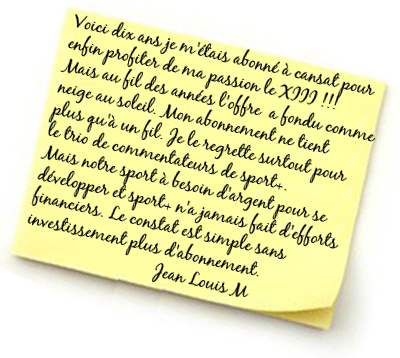 Voici dix ans je m'étais abonné à cansat pour
enfin profiter de ma passion le XIII !!!
Mais au fil des années l'offre a fondu comme
neige au soleil. Mon abonnement ne tient
plus qu'à un fil. Je le regrette surtout pour
le trio de commentateurs de sport+.
Mais notre sport à besoin d'argent pour se
développer et sport+ n'a jamais fait d'efforts
financiers. Le constat est simple sans
investissement plus d'abonnement.
Jean Louis M